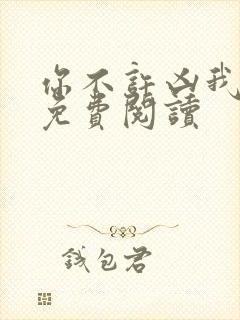 你不許凶我
免費閱讀
錢包君